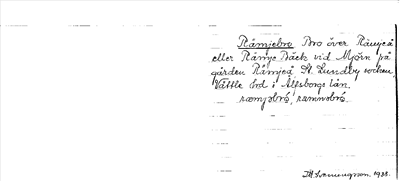 Råmjebro Bro över Rämjeå
eller Rämje Bäck vid Mjörn på
gården Rämjeå, St. Lundby socken,
Vättle hd i Älfsborgs län.
ræmjəbró, ræmnəbró.
1938.